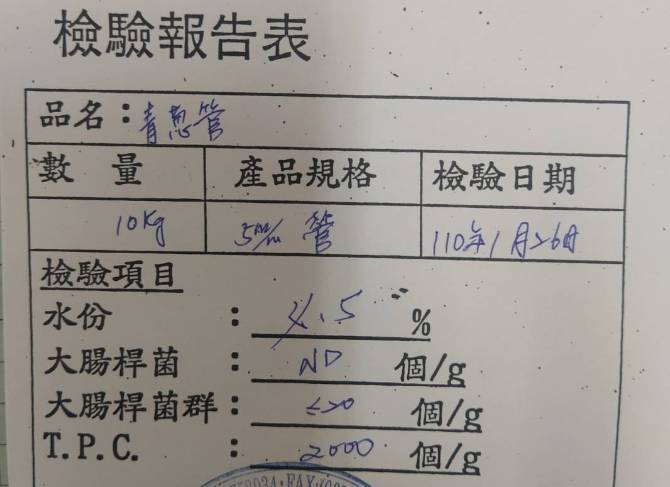 檢驗報告表
品名：青葱管
數量 產品規格 檢驗日期
10kg 5m/m 管 110年1月26日
檢驗項目
水份 : 4.5 %
大腸桿菌 : ND 個/g
大腸桿菌群 : ≤20 個/g
T.P.C. : 2000 個/g